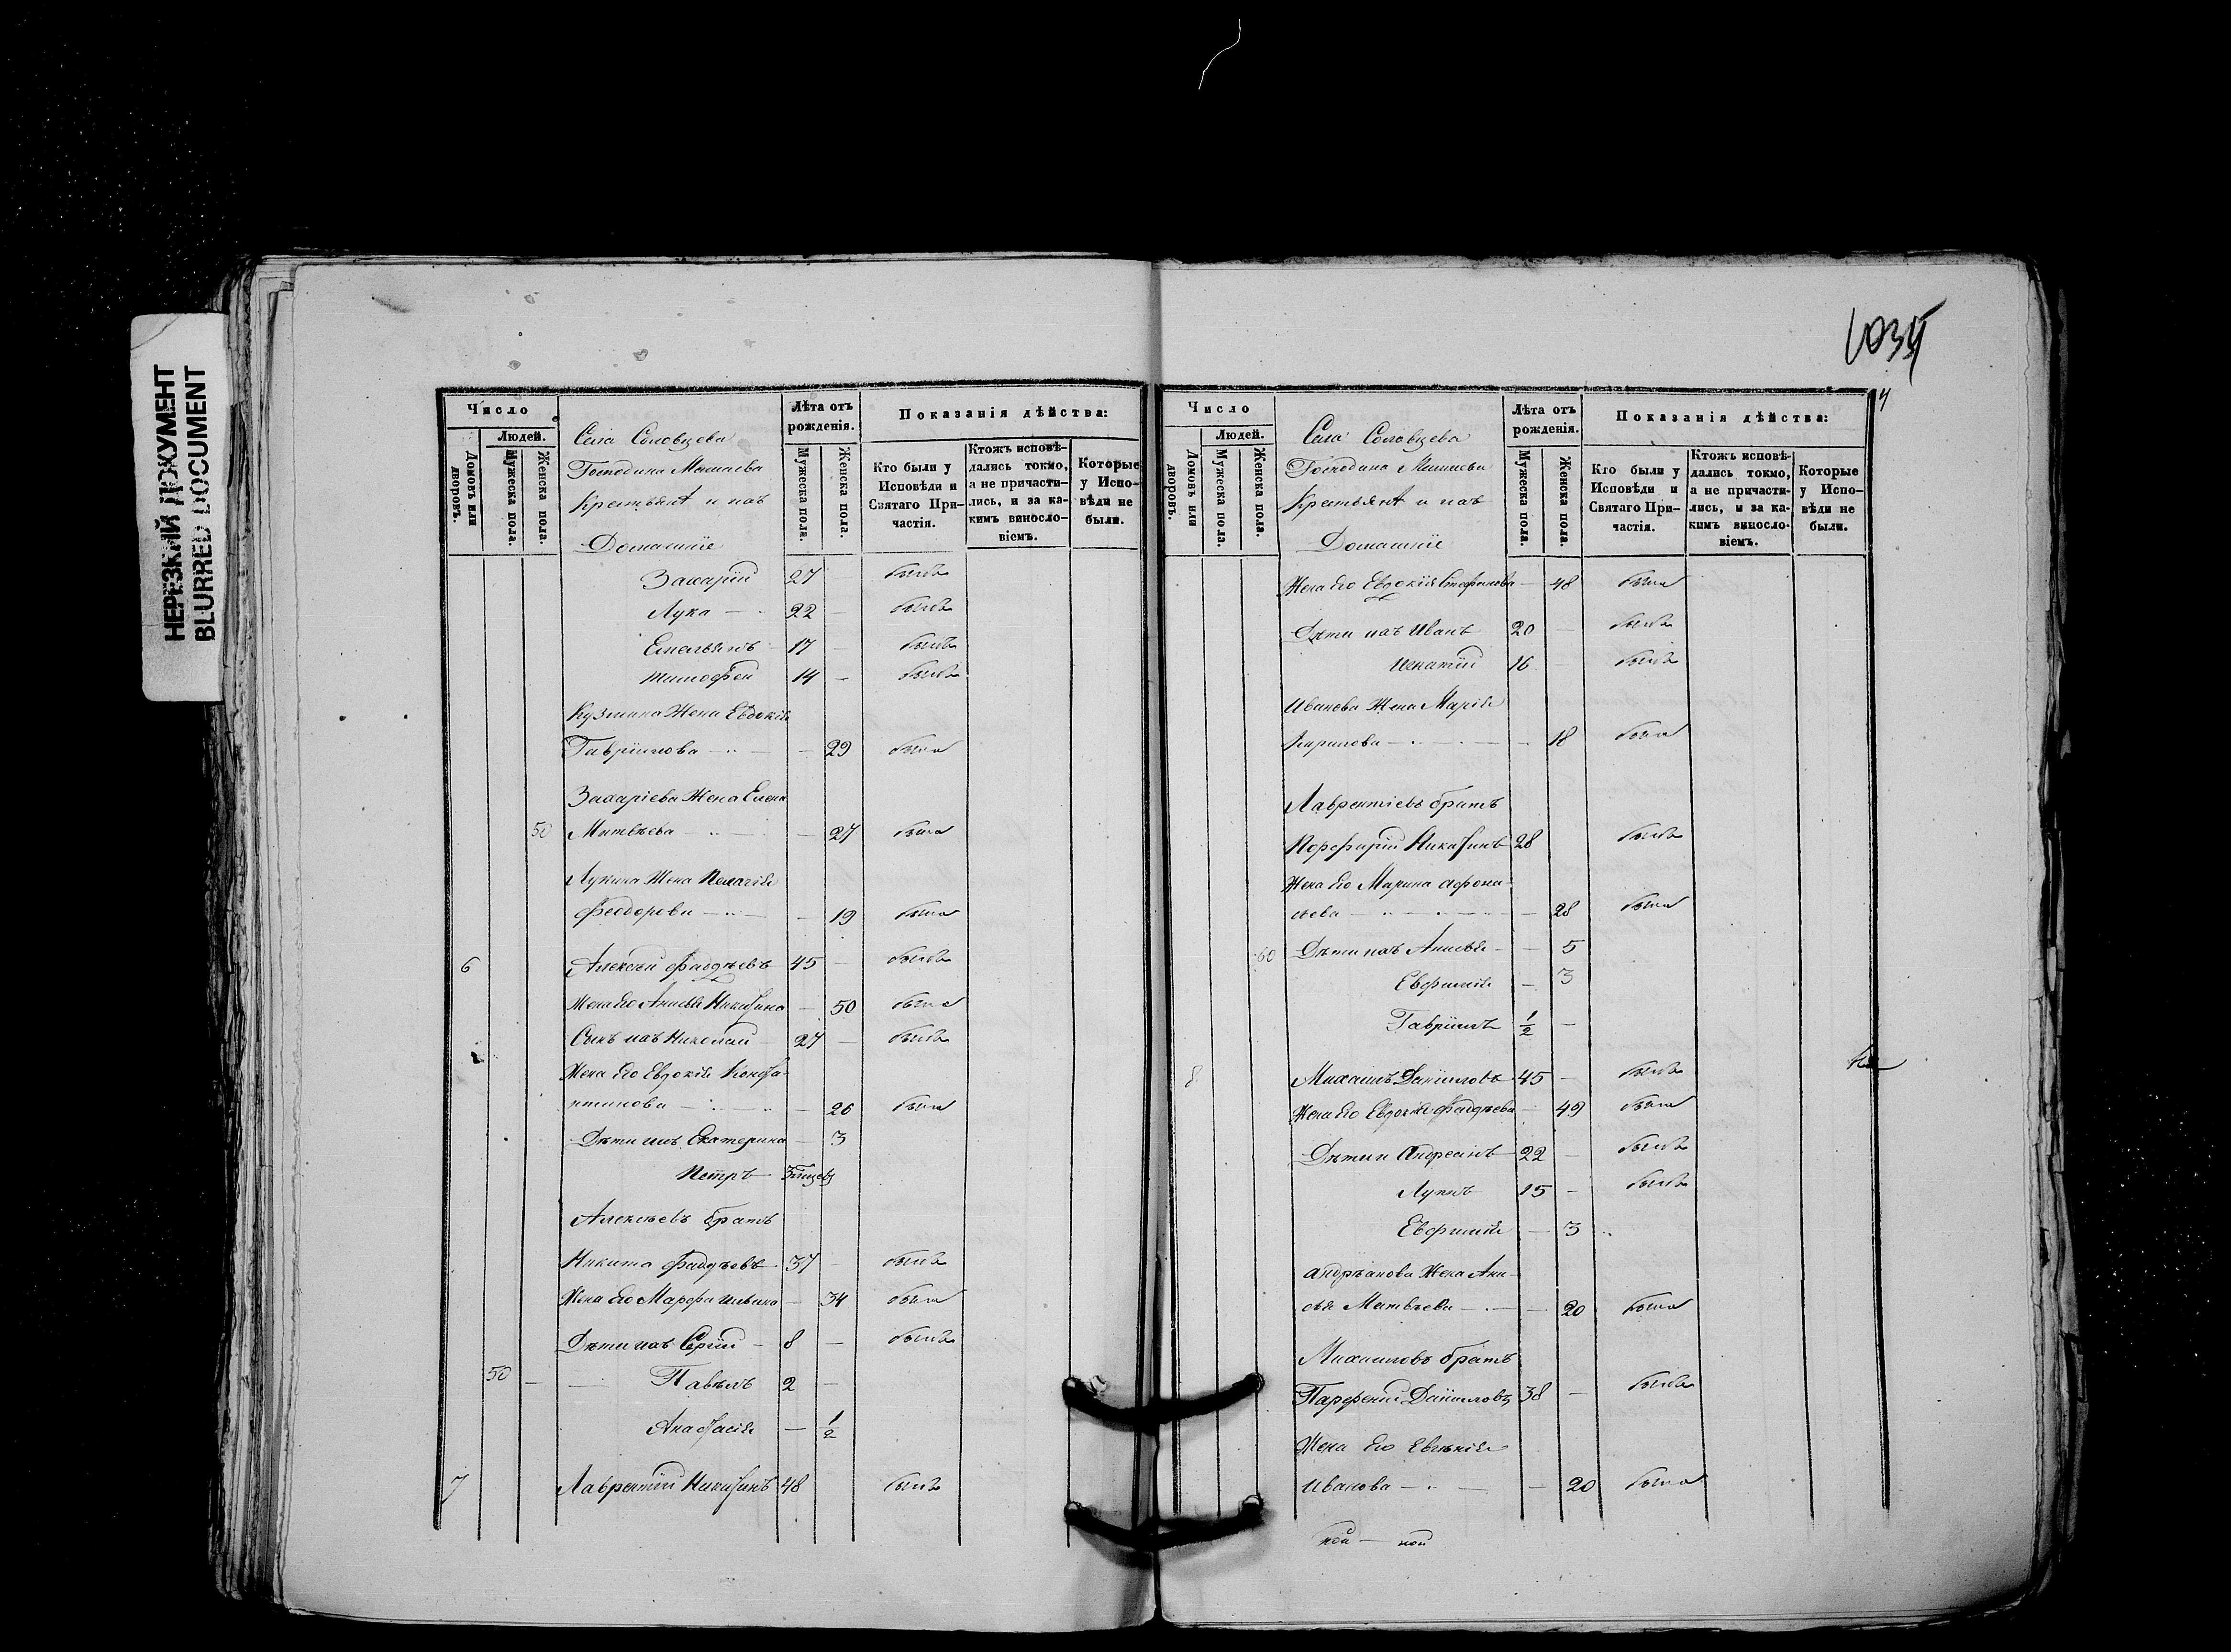 НЕРЕЗКИЙ ДОКУМЕНТ
BLURRED DOCUMENT
Число
Людей.
Домовъ или дворовъ.
Мужеска пола.
Женска пола.
Села Соловцева
Господина
Крестьянѣ и ихъ
Домашніе
Лѣта отъ рожденія.
Мужеска пола.
Женска пола.
Показанія дѣйства:
Кто были у Исповѣди и Святаго Причастія.
Ктожъ исповѣдались токмо, а не причастились, и за какимъ винословіемъ.
Которые у Исповѣди не были.
Захарій 27 — былъ
Лука — 22 — былъ
Емельянъ — 17 — былъ
Тимофей 14 — былъ
Кузмина Жена Евдокія
Гавріилова — — 29 была
Захаріева Жена Елена
50 Матвѣева — — 27 была
Лукина Жена Пелагія
Феодорова — — 19 была
6 Алексѣй Фаддѣевъ 45 — былъ
Жена его Анисья Никитина — 50 была
Сынъ ихъ Николай — 27 — былъ
Жена его Евдокія Конста-
нтинова — — 26 была
Дѣти ихъ Екатерина — 3
Петръ
Алексѣевъ братъ
Никита Фаддѣевъ 37 — былъ
Жена его Марфа Ильина — 34 была
Дѣти ихъ Сергій — 8 — былъ
50 — Павелъ 2 —
Анастасія — 1/2
7 Лаврентій Никитинъ 48 былъ
1035
4
Число
Людей.
Домовъ или дворовъ.
Мужеска пола.
Женска пола.
Села Соловцева
Господина
Крестьянѣ и ихъ
Домашніе
Лѣта отъ рожденія.
Мужеска пола.
Женска пола.
Показанія дѣйства:
Кто были у Исповѣди и Святаго Причастія.
Ктожъ исповѣдались токмо, а не причастились, и за какимъ винословіемъ.
Которые у Исповѣди не были.
Жена его Евдокія Стефанова — 48 была
Дѣти ихъ Иванъ 20 — былъ
Игнатій 16 — былъ
Иванова Жена Марія
Кирилова — — 18 была
Лаврентіевъ братъ
Порфирій Никитинъ 28 былъ
Жена его Марина Афона-
сьева — — 28 была
60 Дѣти ихъ Анисья — — 5
Евфимія — 3
Гавріилъ 1/2 —
8 Михаилъ Даніиловъ 45 — былъ
Жена его Евдокія Фаддѣева — 49 была
Дѣти и Андреанъ 22 — былъ
Лукъ 15 — былъ
Евфимія — 3
Андрѣанова Жена Ани-
сья Матвѣева — — 20 была
Михаиловъ братъ
Парфеній Даніиловъ 38 — былъ
Жена его Евгенія
Иванова — — 20 была